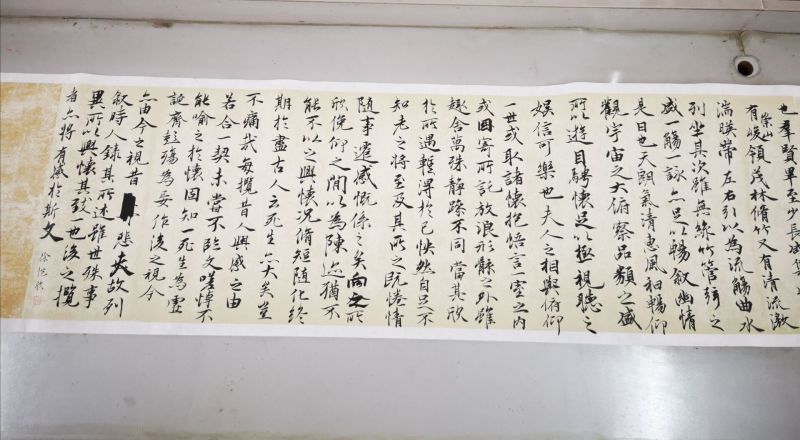 也羣賢畢至少長咸
崇山
有峻領茂林脩竹又有清流激
湍暎帶左右引以為流觴曲水
列坐其次雖無絲竹管弦之
盛一觴一詠亦足以暢叙幽情
是日也天朗氣清惠風和暢仰
觀宇宙之大俯察品類之盛
所以遊目騁懷足以極視聽之
娛信可樂也夫人之相與俯仰
一世或取諸懷抱悟言一室之內
或因寄所託放浪形骸之外雖
趣舍萬殊靜躁不同當其欣
於所遇蹔得於己怏然自足不
知老之將至及其所之既惓情
隨事遷感慨係之矣向之所
欣俛仰之間以為陳迹猶不
能不以之興懷況脩短隨化終
期於盡古人云死生亦大矣豈
不痛哉每攬昔人興感之由
若合一契未嘗不臨文嗟悼不
能喻之於懷固知一死生為虛
誕齊彭殤為妄作後之視今
亦由今之視昔悲夫故列
叙時人錄其所述雖世殊事
異所以興懷其致一也後之攬
者亦將有感於斯文